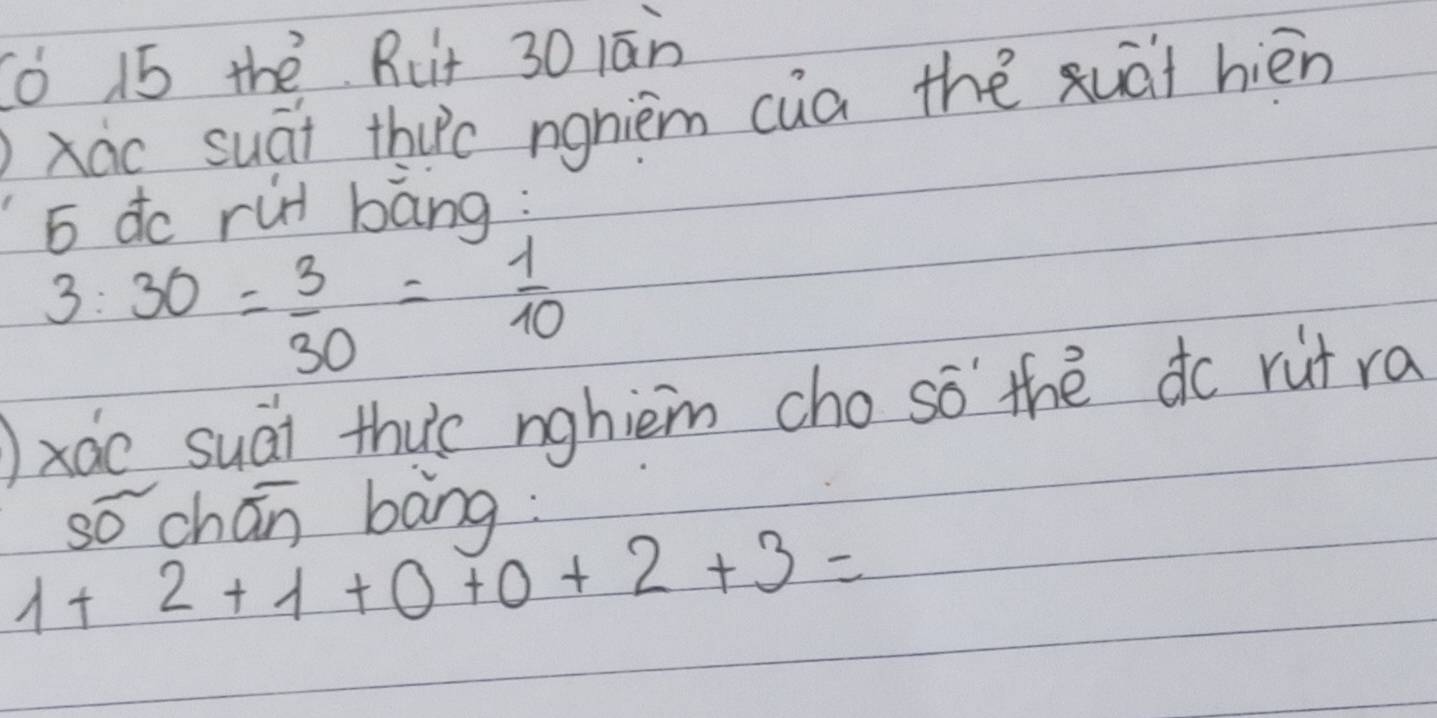 Có 15 thẻ. Rút 30 lần
) xác suất thực nghiệm của thẻ xuất hiện
5 đc rút bằng:
3 : 30 = 3/30 = 1/10
) xác suất thực nghiệm cho số thẻ đc rút ra
số chẵn bằng:
1 + 2 + 1 + 0 + 0 + 2 + 3 =